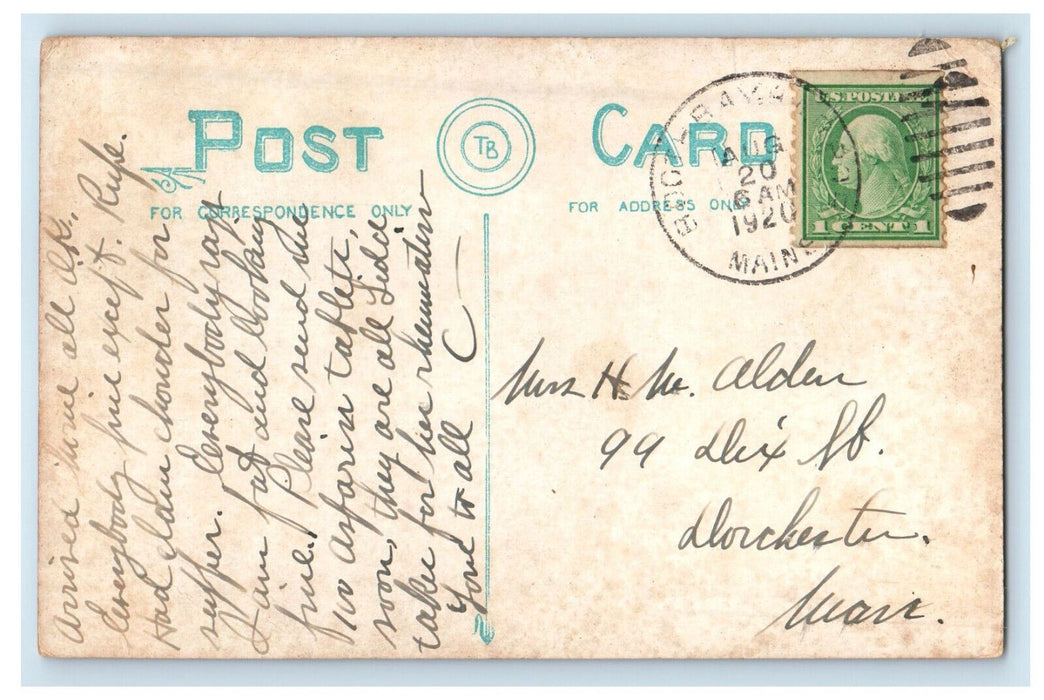 POST CARD
TB
FOR CORRESPONDENCE ONLY
FOR ADDRESS ONLY
AUG
20
6 AM
1920
MAINE
U.S. POSTAGE
1 CENT 1
Arrived home all O.K.
Everybody fine except Rufe.
Had clam chowder for
supper. Everybody says
I am fat and looking
fine. Please send me
100 asparin tablets,
soon, they are all Lidda
takes for her rheumatism
Love to all
C
Mrs H. M. Alden
99 Dix St.
Dorchester.
Mass.